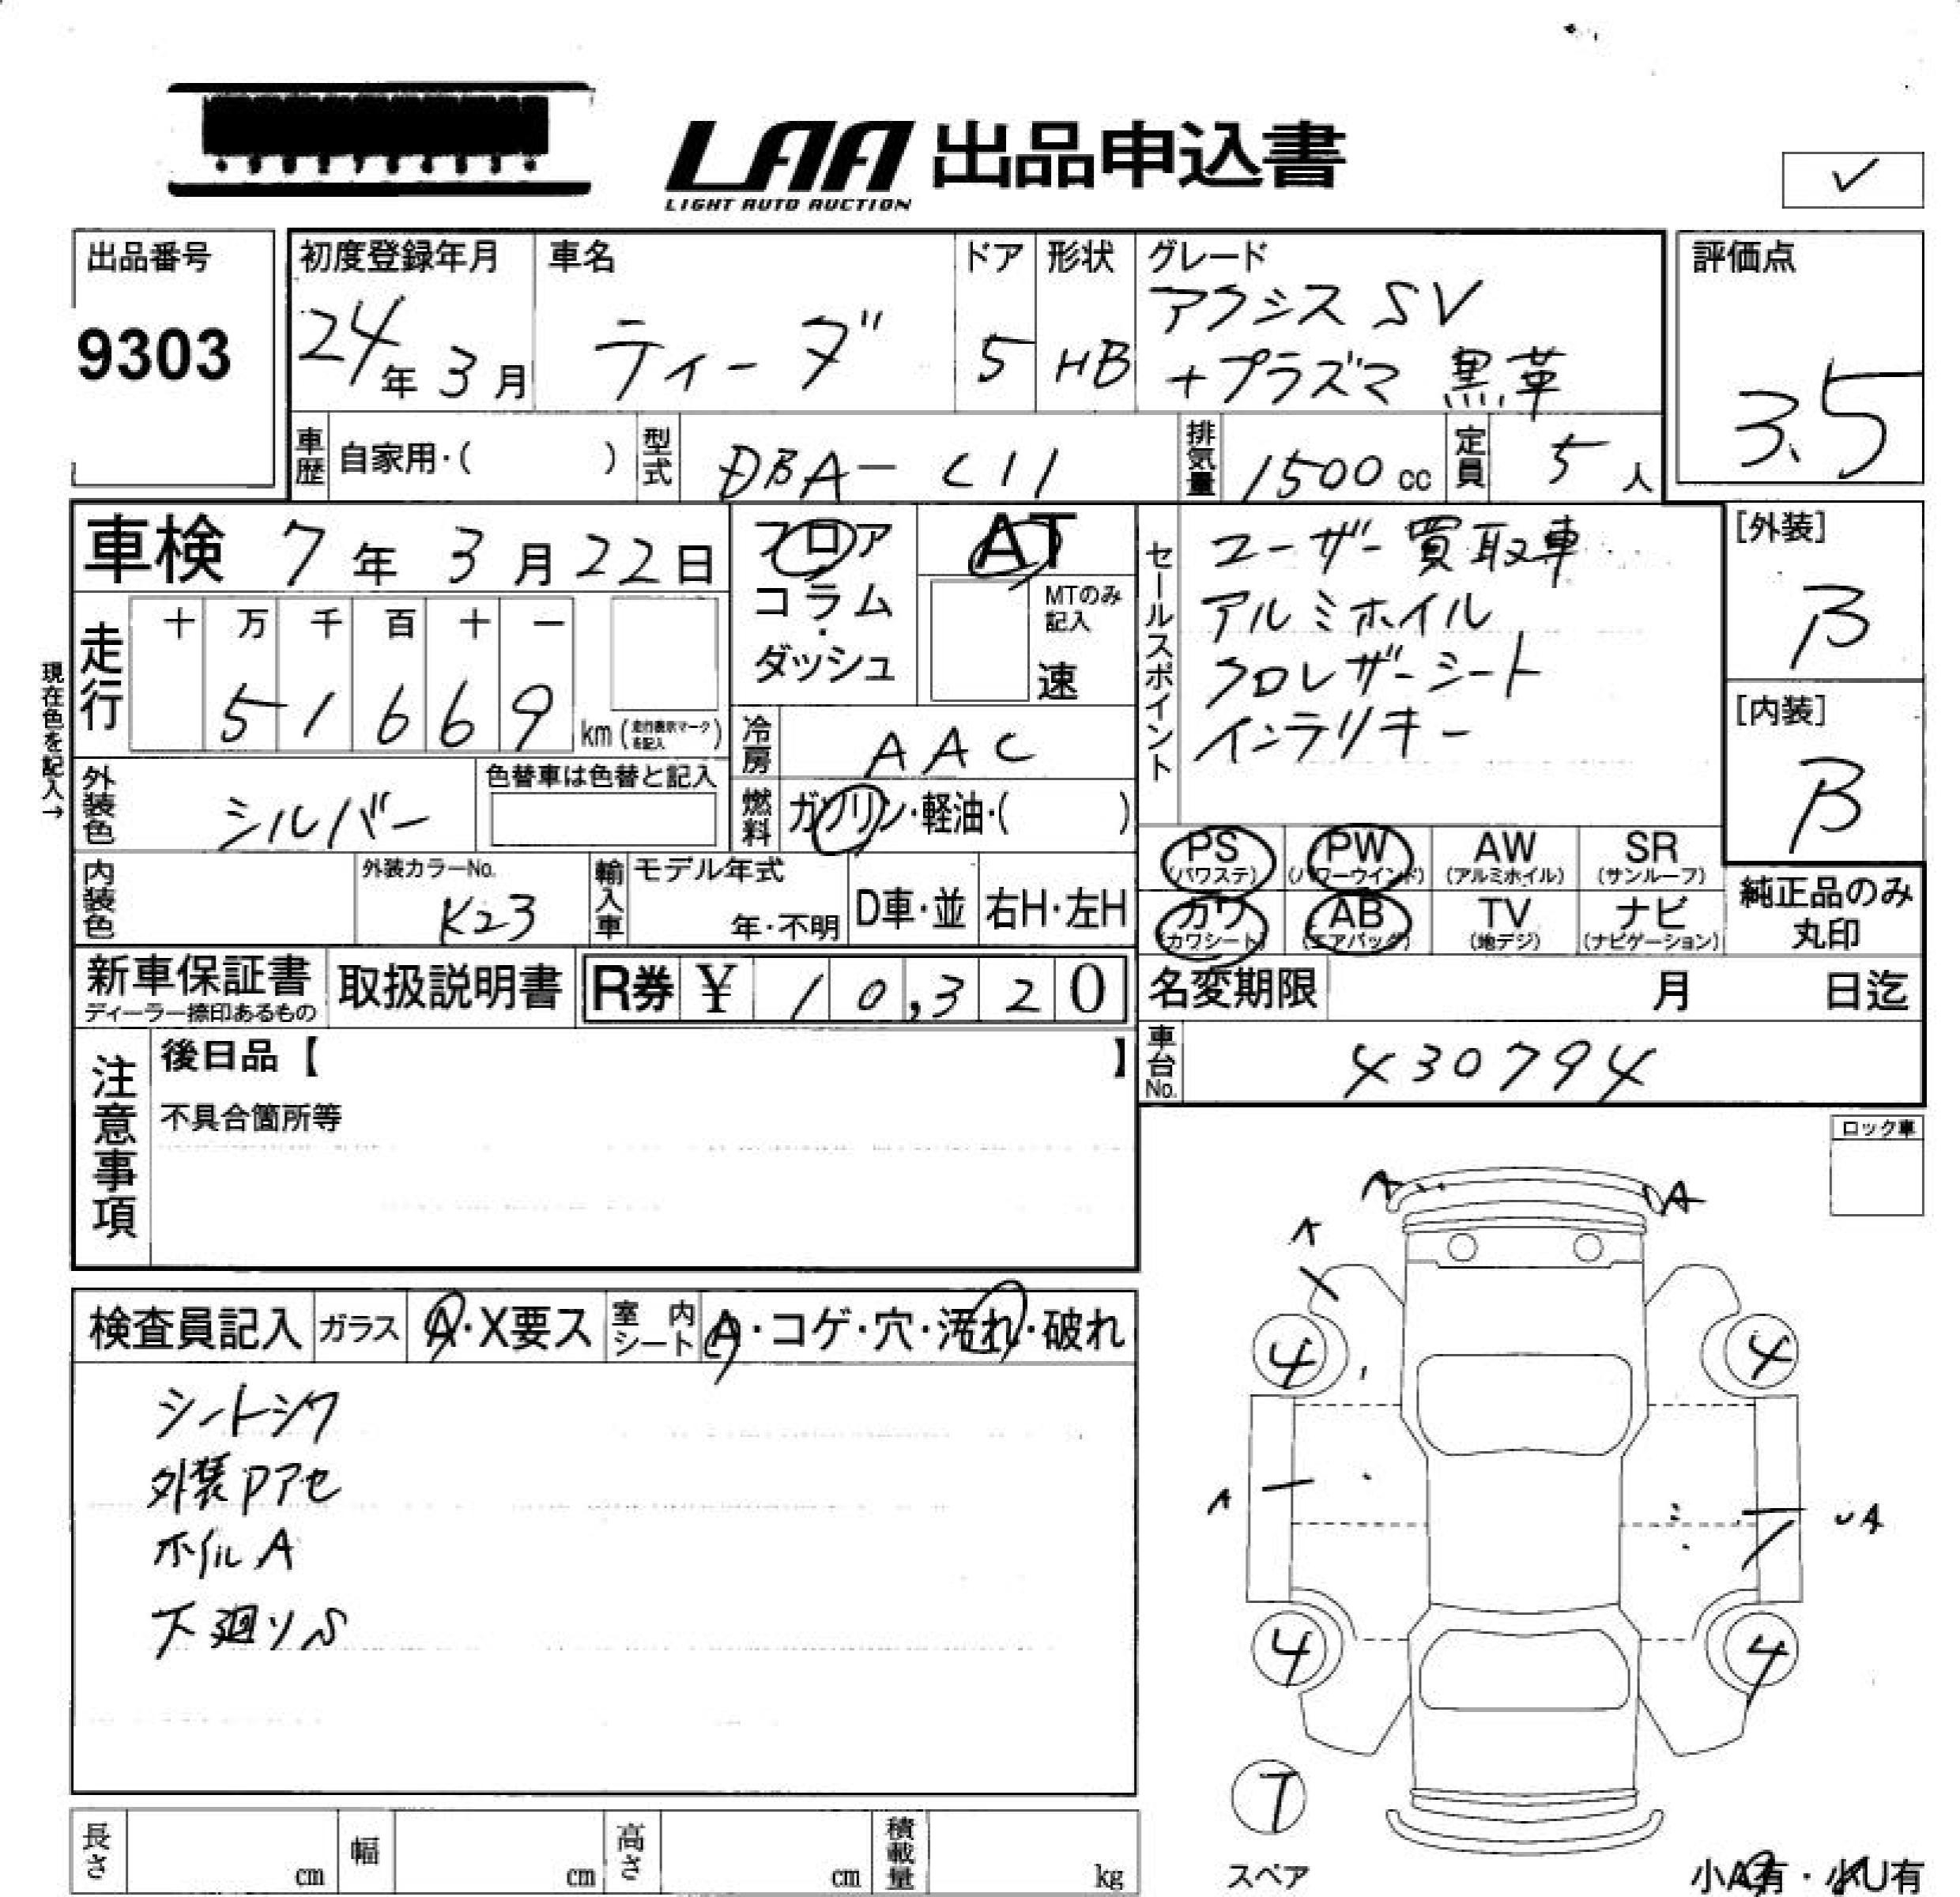 LAA 出品申込書
LIGHT AUTO AUCTION
✓
出品番号
9303
初度登録年月
24年 3月
車名
ティーダ
ドア
5
形状
HB
グレード
アクシス SV
+プラズマ 黒革
評価点
3.5
車歴 自家用・( )
型式 DBA-C11
排気量 1500 cc
定員 5 人
車検 7年 3月 22日
フロア
コラム
・
ダッシュ
AT
MTのみ
記入
速
セールスポイント
ユーザー買取車
アルミホイル
クロレザーシート
インテリキー
[外装]
B
[内装]
B
現在色を記入→
走行
十 万 千 百 十 一
5 1 6 6 9
km (走行表示マークを記入)
冷房 AAC
外装色 シルバー
色替車は色替と記入
燃料 ガソリン・軽油・( )
PS
(パワステ)
PW
(パワーウインド)
AW
(アルミホイル)
SR
(サンルーフ)
カワ
(カワシート)
AB
(エアバッグ)
TV
(地デジ)
ナビ
(ナビゲーション)
純正品のみ
丸印
内装色
外装カラーNo.
K23
輸入車
モデル年式
年・不明
D車・並
右H・左H
新車保証書
ディーラー捺印あるもの
取扱説明書
R券 ¥ 10,320
名変期限 月 日迄
車台No. 430794
注意事項
後日品【 】
不具合箇所等
ロック車
検査員記入
ガラス
A・X要ス
室内シート
A・コゲ・穴・汚れ・破れ
シートシワ
外装Pアセ
ホイルA
下廻りS
A
A
A
4
4
A
UA
4
4
T
スペア
小A有・小U有
長さ cm
幅 cm
高さ cm
積載量 kg